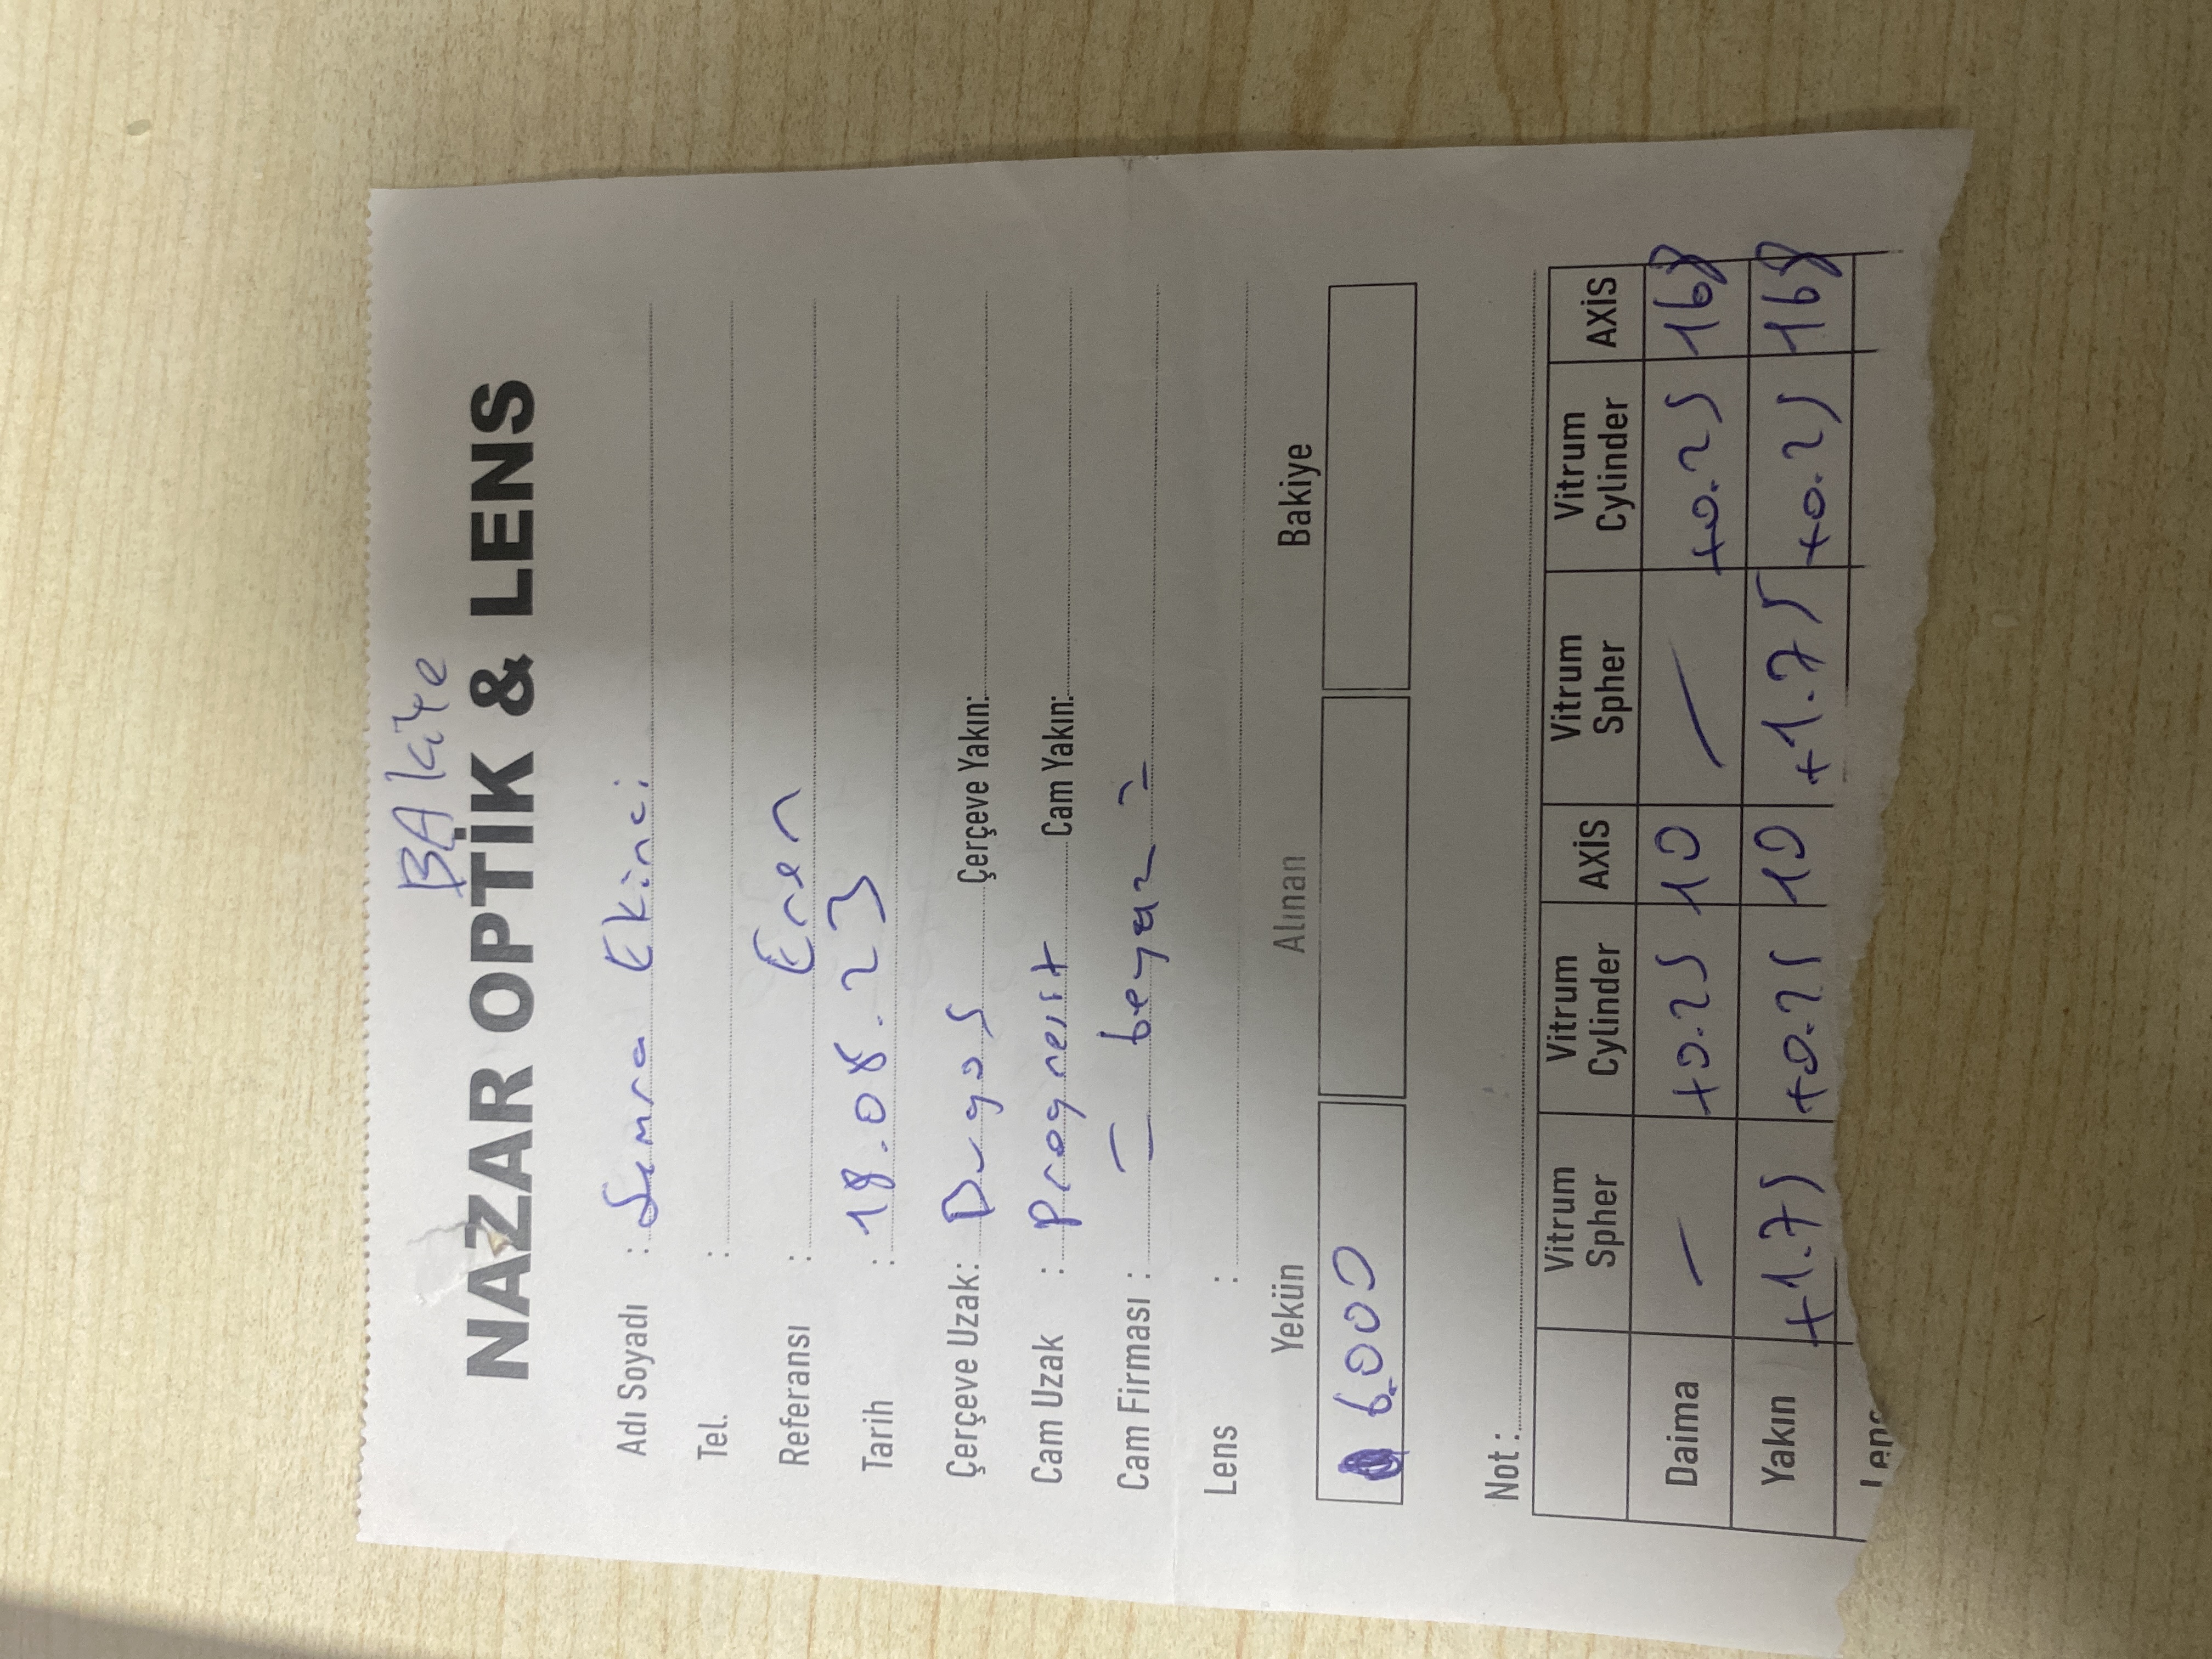 BAkiye
NAZAR OPTİK & LENS
Adı Soyadı : Semra Ekinci
Tel. :
Referansı : Eren
Tarih : 18.08.23
Çerçeve Uzak: Çerçeve Yakın:
Cam Uzak : Progresit Cam Yakın:
Cam Firması : = beyaz =
Lens :
Yekün Alınan Bakiye
6.000
Not :
Vitrum Spher Vitrum Cylinder AXİS Vitrum Spher Vitrum Cylinder AXİS
Daima — +0.25 10 — +0.25 168
Yakın +1.75 +0.25 10 +1.75 +0.25 168
Lens